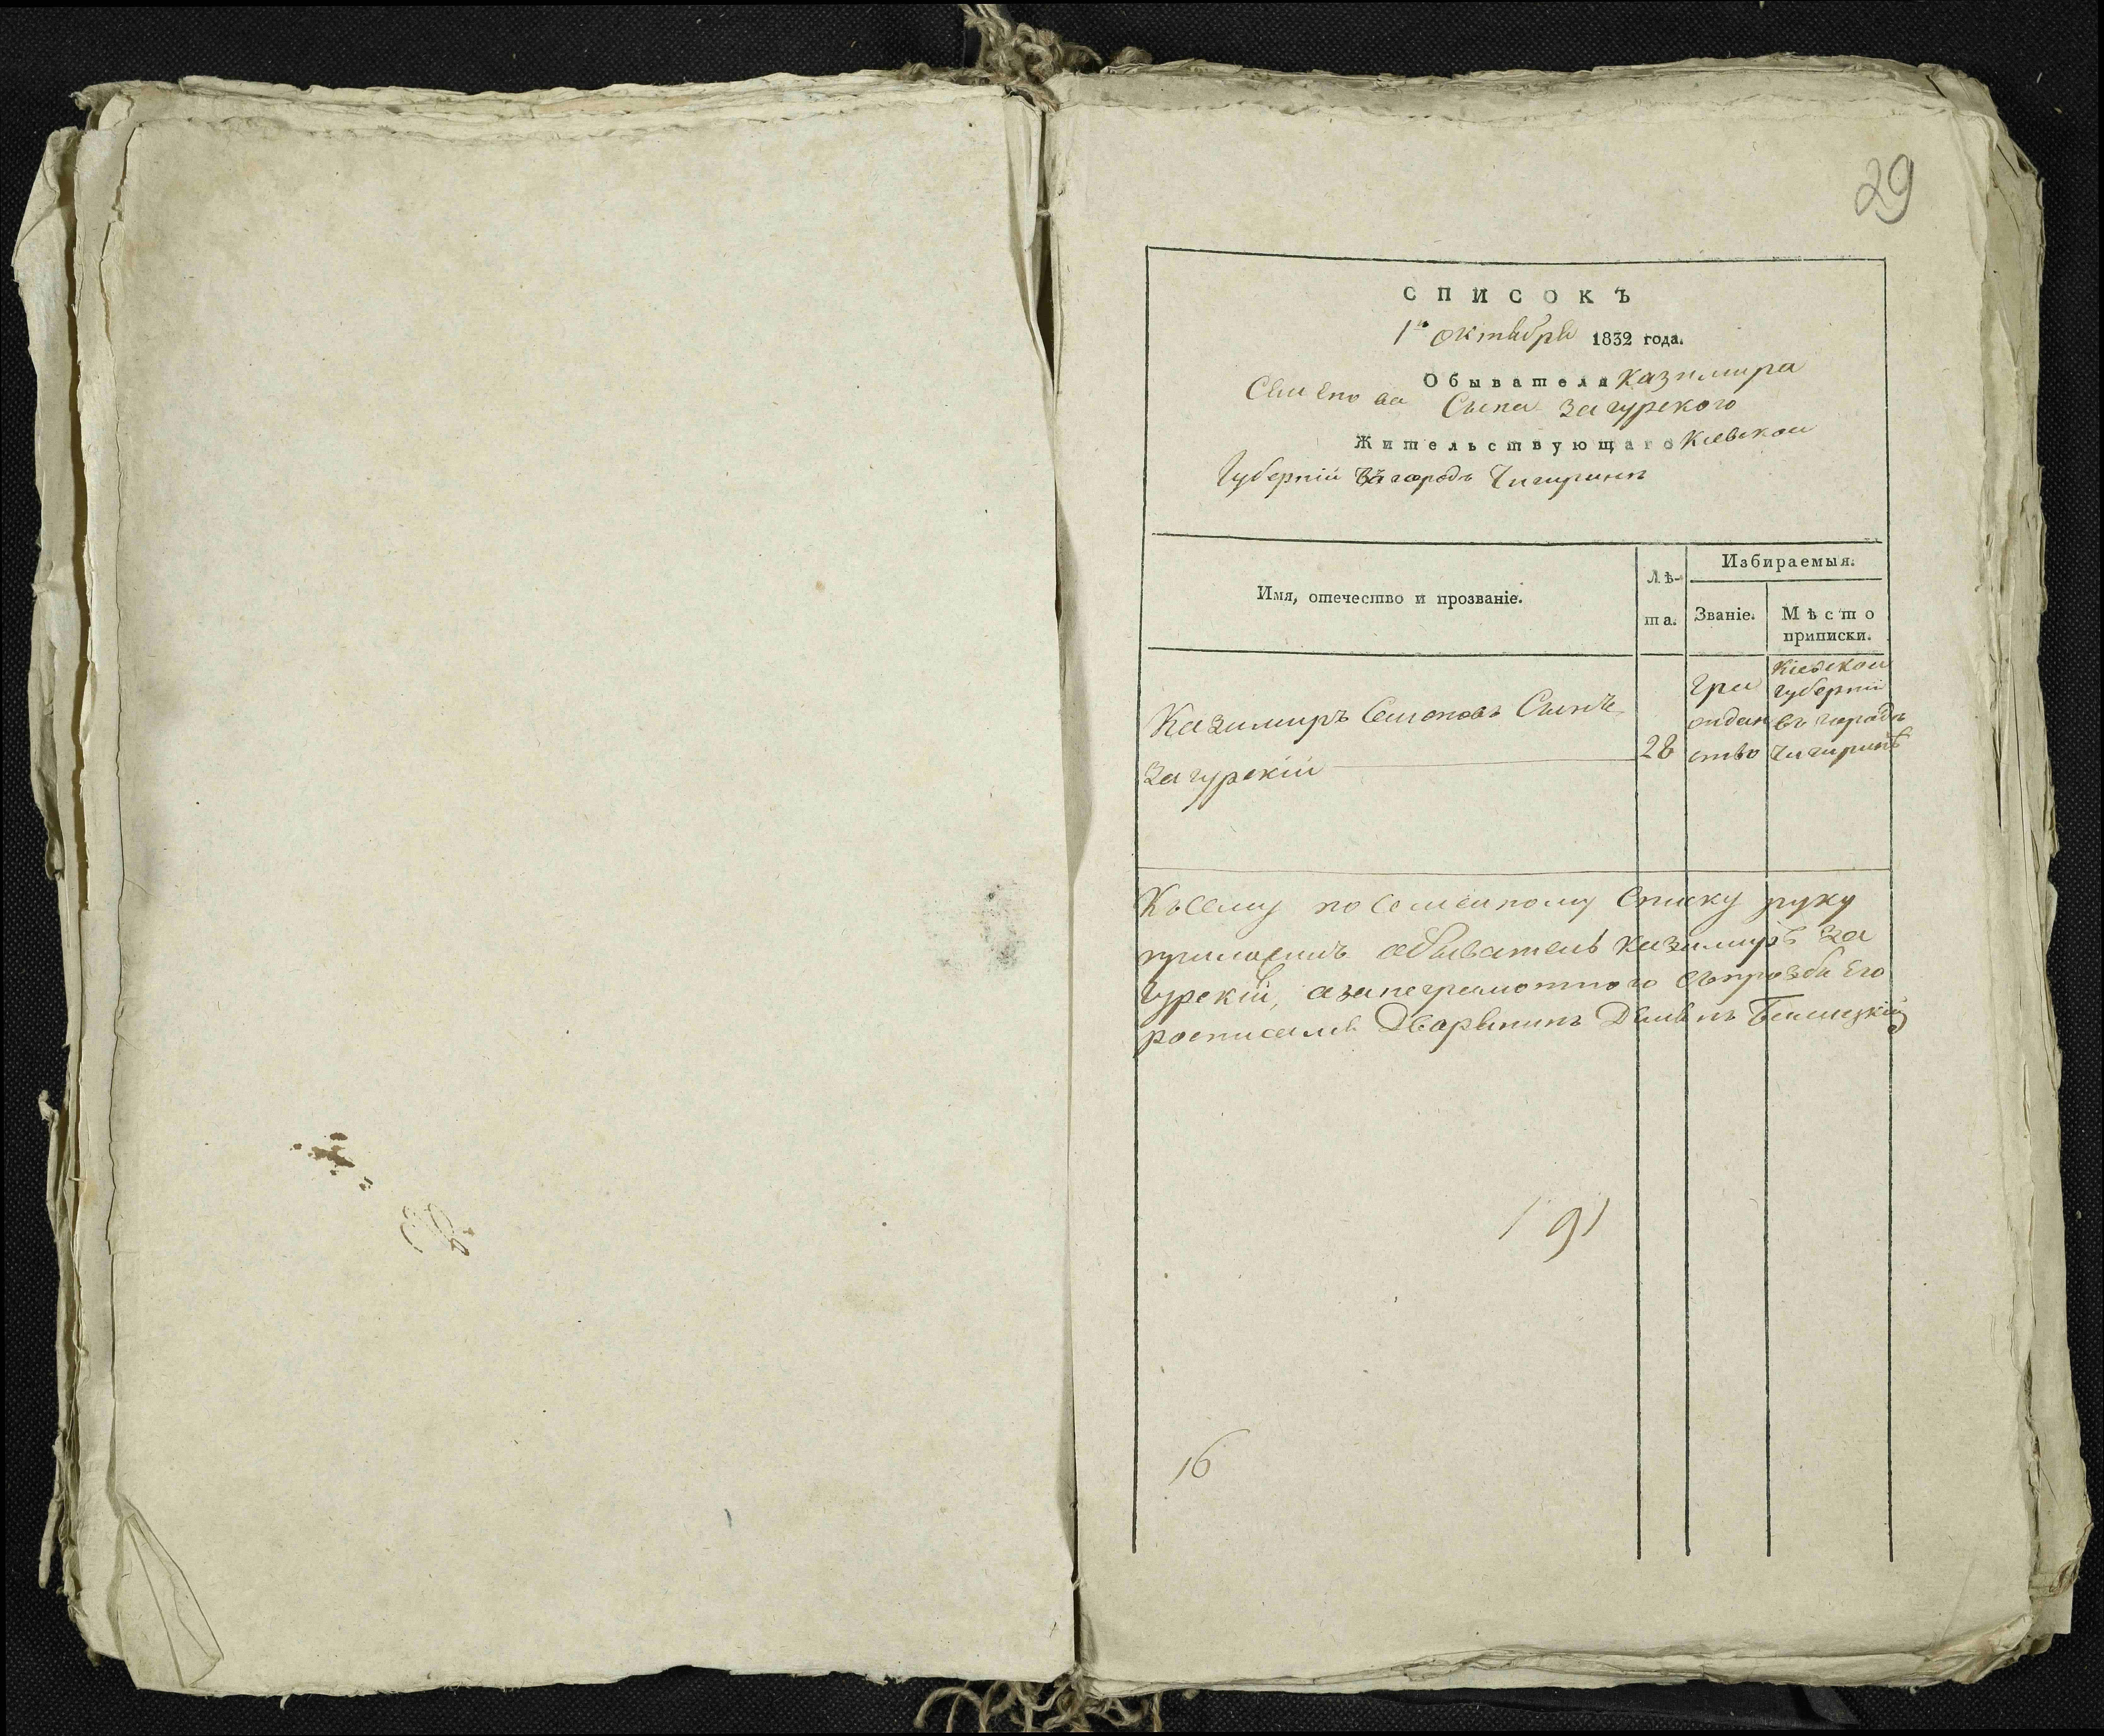 29
СПИСОКЪ
1го октября 1832 года.
Обывателя Казимира
Семенова Сына Загурского
Жительствующаго Киевской
Губерніи въ городѣ Чигиринѣ
Имя, отечество и прозваніе.
Лѣ-
та.
Избираемыя.
Званіе.
Мѣсто
приписки.
Казимиръ Семеновъ Сынъ
Загурскій
28
Гра
ждан
ство
Кіевской
Губерніи
въ городѣ
Чигиринѣ
Къ сему посемейному Списку руку
приложилъ обыватель Казимиръ За
гурскій, а за неграмотного съ прозби Его
росписался Дворянинъ
191
16